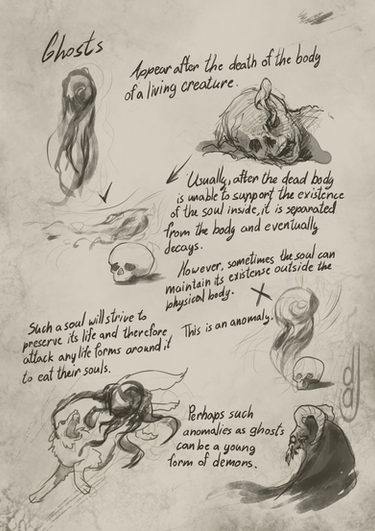 Ghosts
Appear after the death of the body
of a living creature.
Usually, after the dead body
is unable to support the existence
of the soul inside, it is separated
from the body and eventually
decays.
However, sometimes the soul can
maintain its existense outside the
physical body.
This is an anomaly.
Such a soul will strive to
preserve its life and therefore
attack any life forms around it
to eat their souls.
Perhaps such
anomalies as ghosts
can be a young
form of demons.